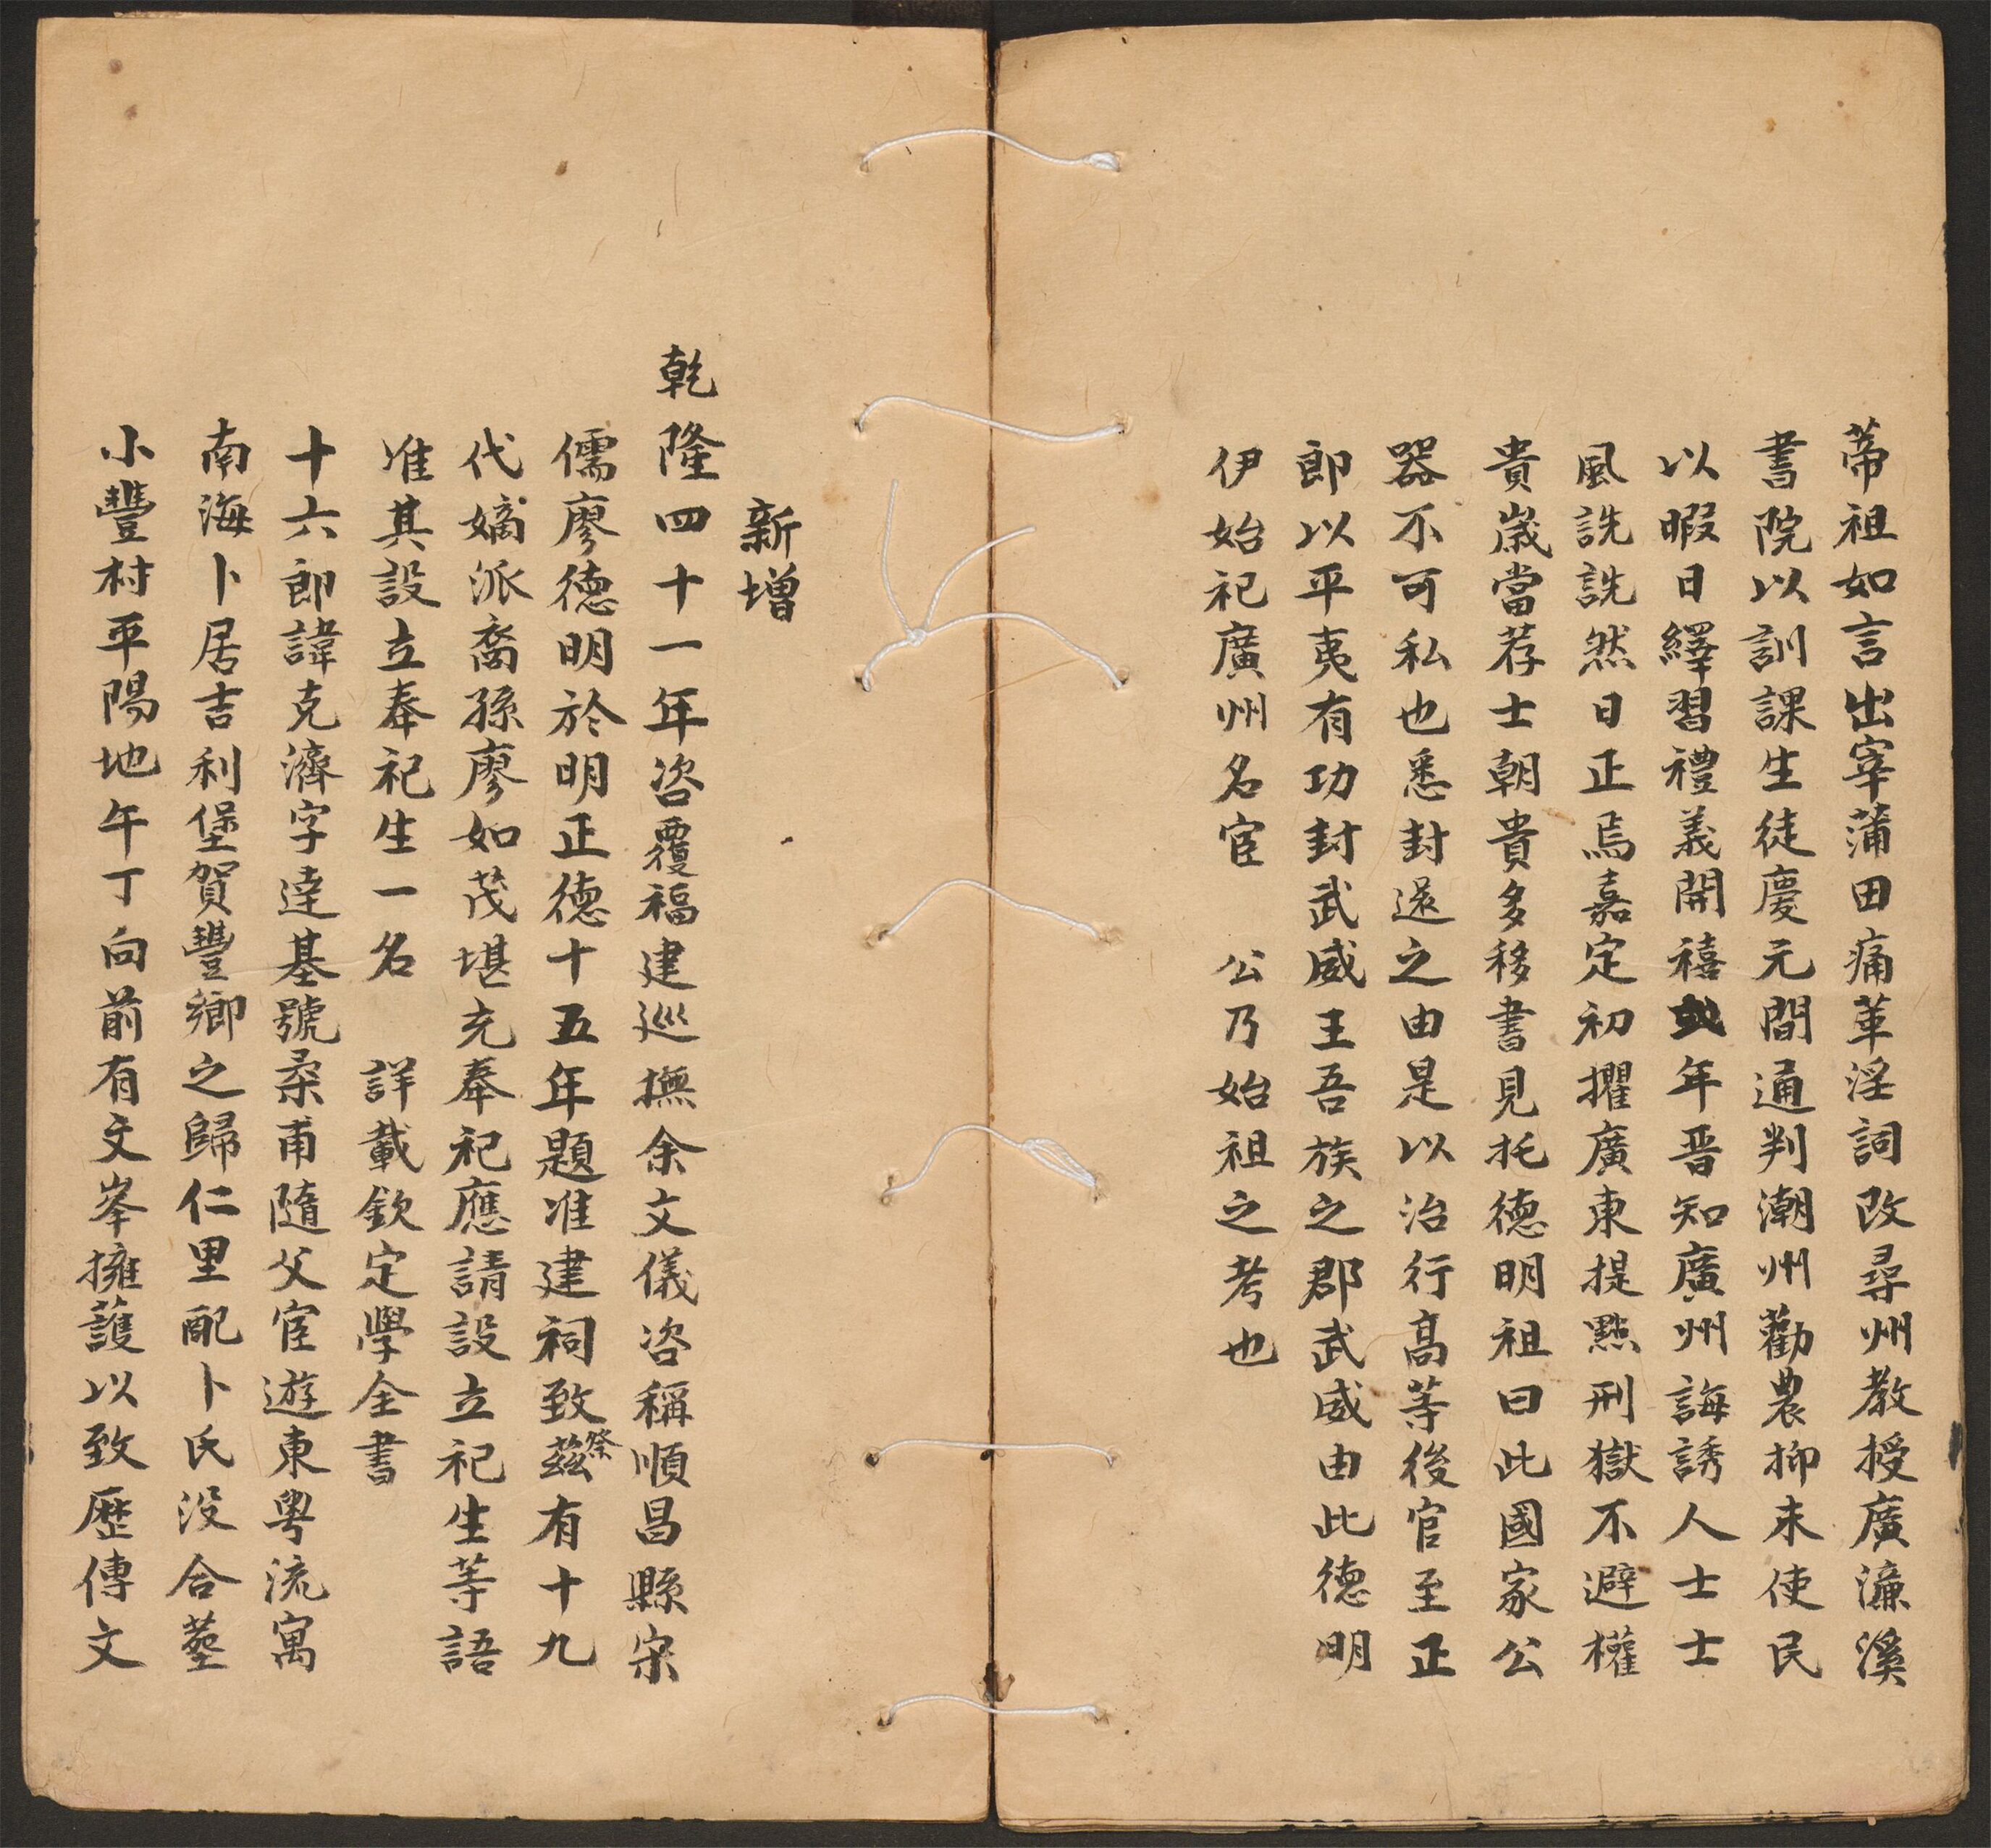 蒂祖如言出宰蒲田痛革淫詞改尋州教授廣濂溪
書院以訓課生徒慶元間通判潮州勸農抑末使民
以暇日繹習禮義開禧弍年晋知廣州誨誘人士士
風詵詵然日正焉嘉定初擢廣東提點刑獄不避權
貴嵗當荐士朝貴多移書見托德明祖曰此國家公
器不可私也悉封還之由是以治行高等後官至正
郎以平夷有功封武威王吾族之郡武威由此德明
伊始祀廣州名宦　公乃始祖之考也
新增
乾隆四十一年咨覆福建巡撫余文儀咨稱順昌縣宋
儒廖德明於明正德十五年題准建祠致祭茲有十九
代嫡派裔孫廖如茂堪充奉祀應請設立祀生等語
准其設立奉祀生一名　詳載欽定學全書
十六郎諱克濟字達基號柔甫隨父宦遊東粵流寓
南海卜居吉利堡賀豐鄉之歸仁里配卜氏没合塟
小豐村平陽地午丁向前有文峯擁護以致歷傳文